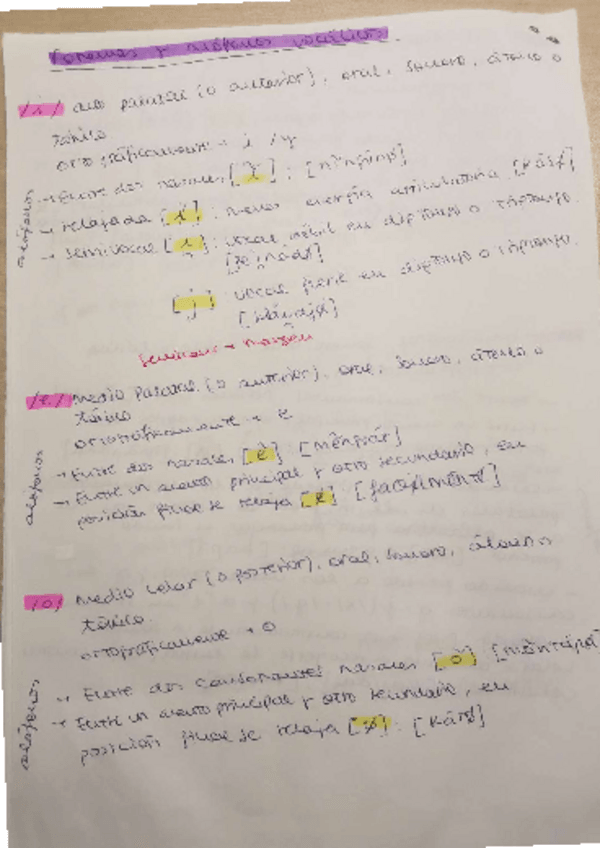 Fonemas y alófonos vocálicos
/i/ alto palatal (o anterior), oral, sonoro, átono o
tónico
ortográficamente → i / y
alófonos
→ Entre dos nasales [ĩ] : [nĩnɡũno]
→ relajada [i̷] : menor energía articulatoria [kási̷]
→ semivocal [i̯] : vocal débil en diptongo o triptongo.
[pei̯náđo]
[j] : vocal débil en diptongo o triptongo.
semivocal → margen
/e/ medio palatal (o anterior), oral, sonoro, átono o
tónico
ortográficamente → e
alófonos
→ Entre dos nasales [ẽ] [mẽnɡuár]
→ Entre un acento principal y otro secundario, en
posición final se relaja [e̷] [fácilménte̷]
/o/ medio velar (o posterior), oral, sonoro, átono o
tónico.
ortográficamente → o
alófonos
→ Entre dos consonantes nasales [õ] [mõntáɲa]
→ Entre un acento principal y otro secundario, en
posición final se relaja [ø] : [káṛø]